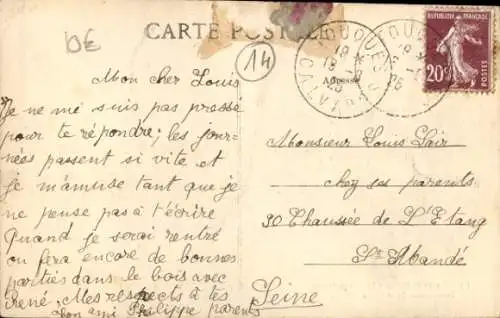 CARTE POSTALE
DE
14
TOUQUES
19 *
CALVADOS
Adresse
REPUBLIQUE FRANÇAISE
20c
POSTES
Mon cher Louis
Je ne me suis pas pressé
pour te répondre; les jour-
nées passent si vite et
je m'amuse tant que je
ne pense pas à t'écrire
Quand je serai rentré
on fera encore de bonnes
parties dans le bois avec
René; Mes respects à tes
ton ami Philippe parents
Monsieur Louis
chez ses parents
30 Chaussée de L'Etang
St Mandé
Seine